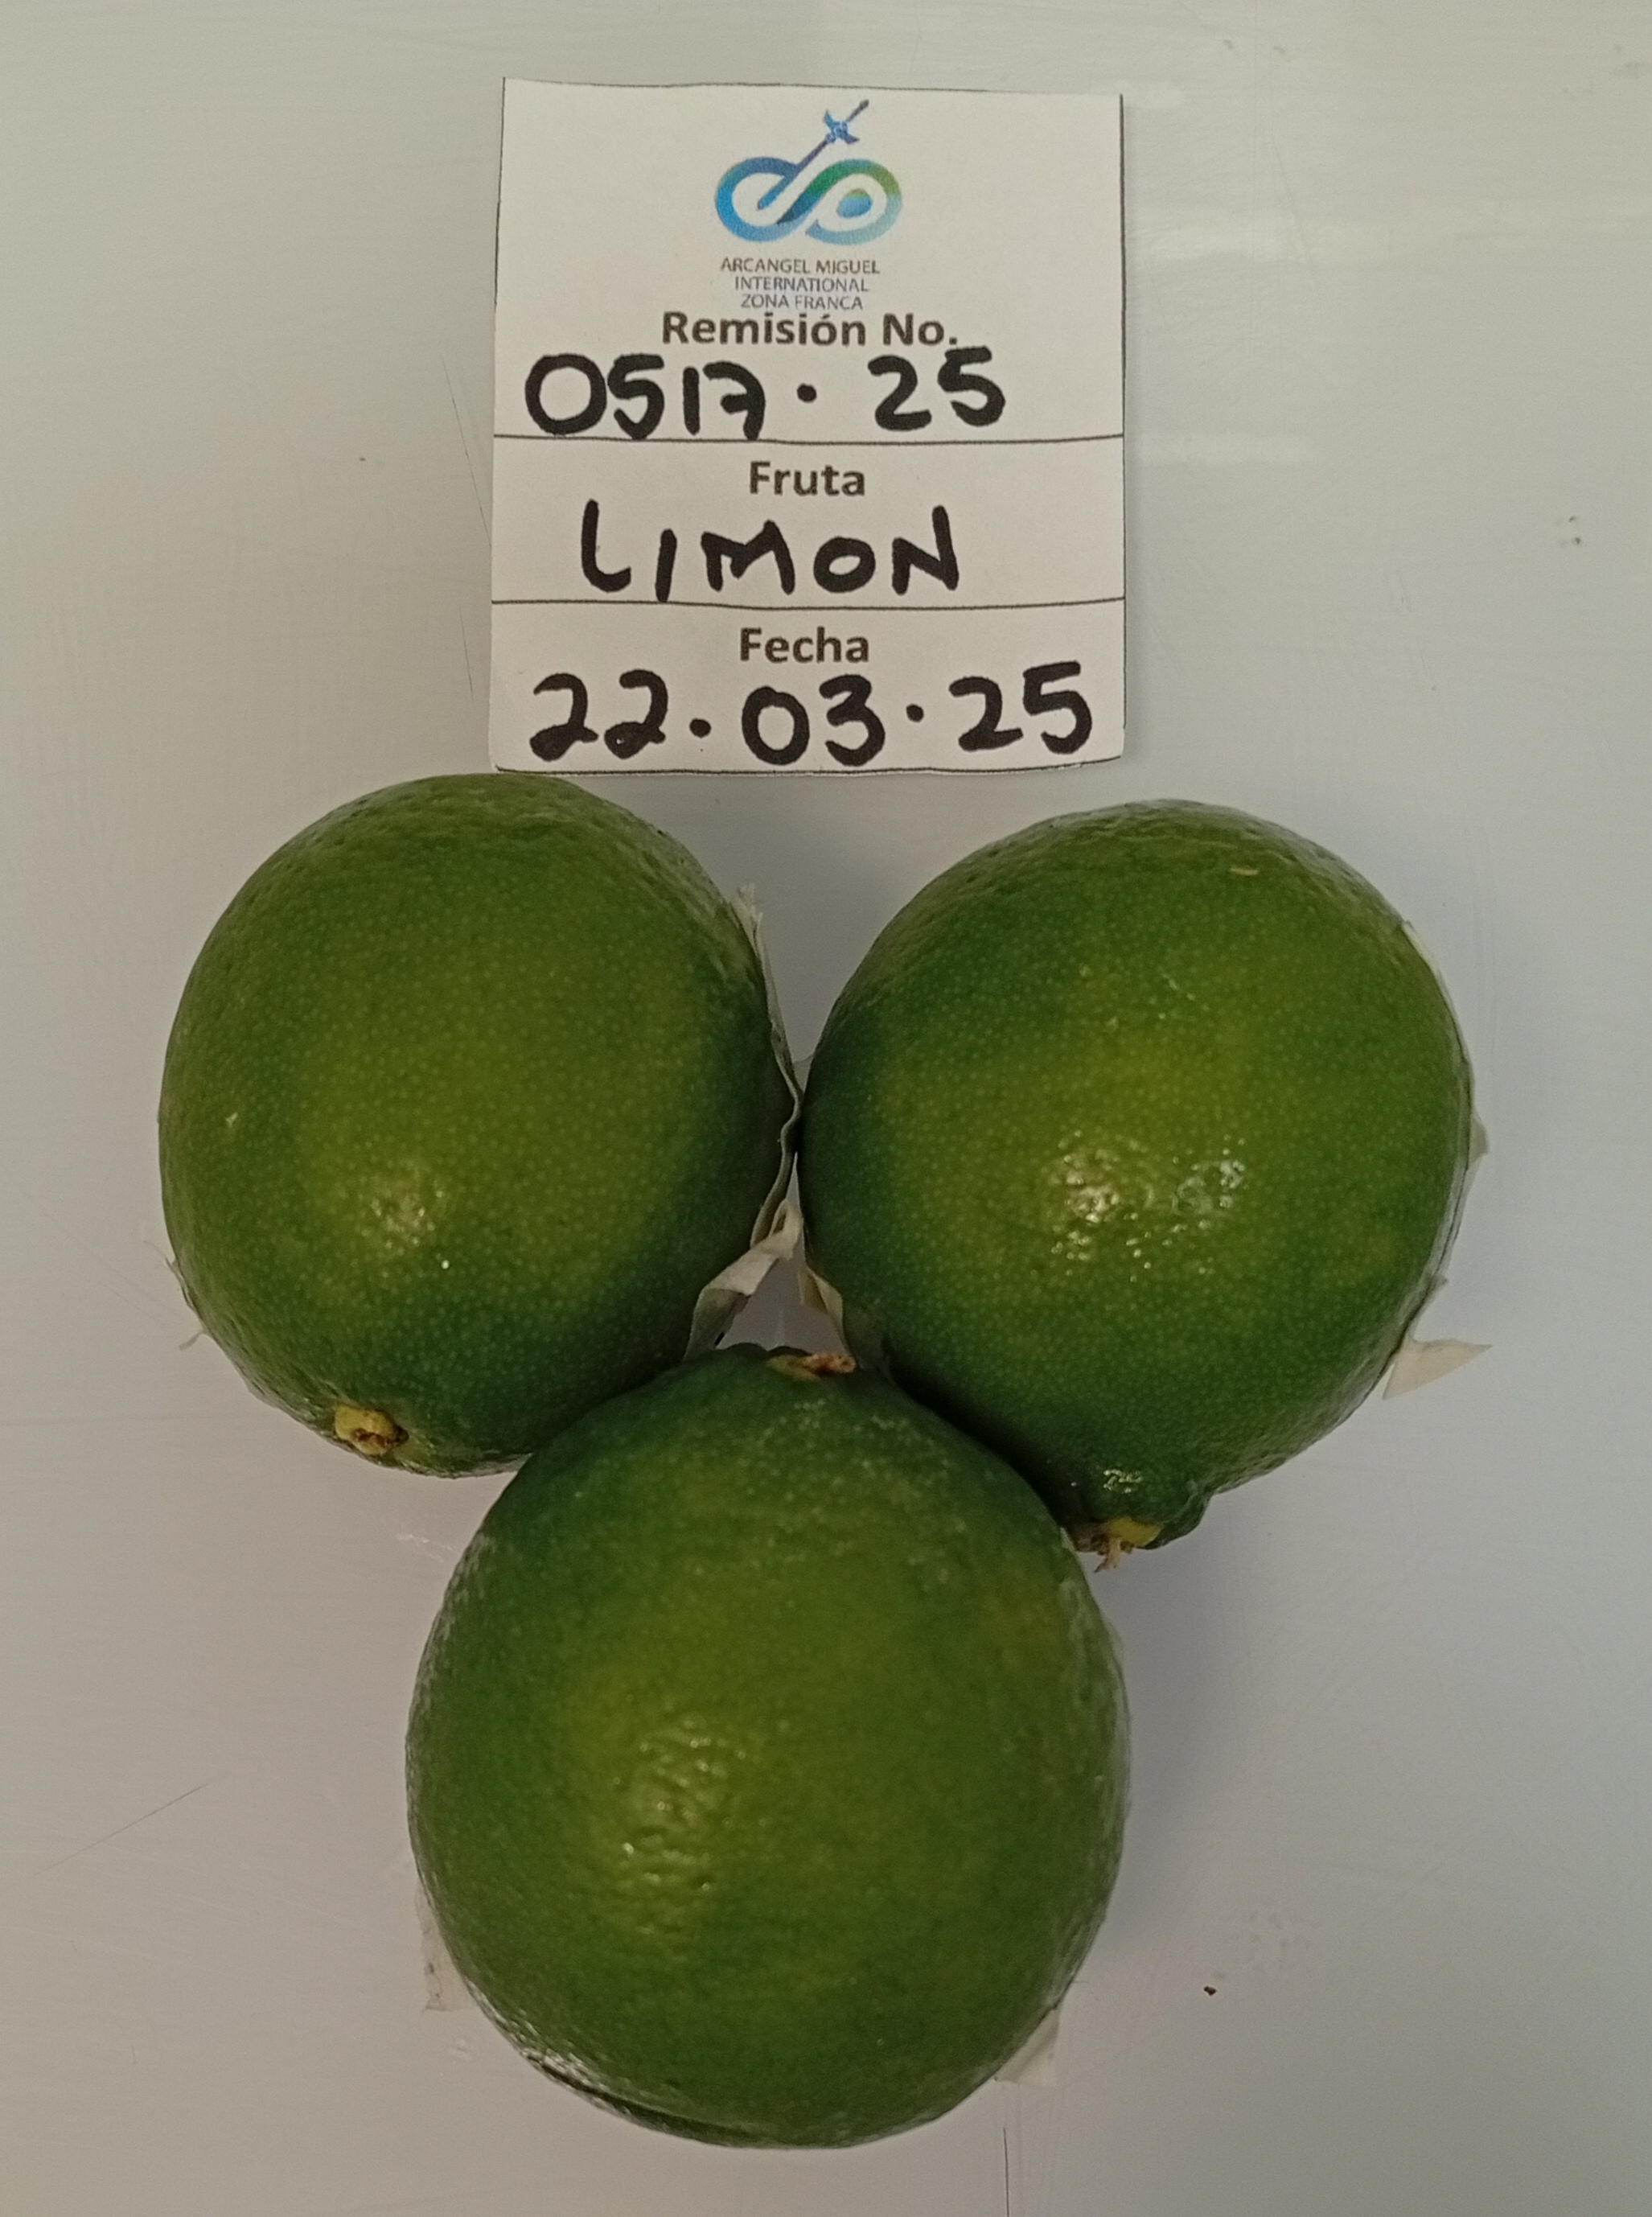 ARCANGEL MIGUEL
INTERNATIONAL
ZONA FRANCA
Remisión No.
0517·25
Fruta
LIMON
Fecha
22·03·25